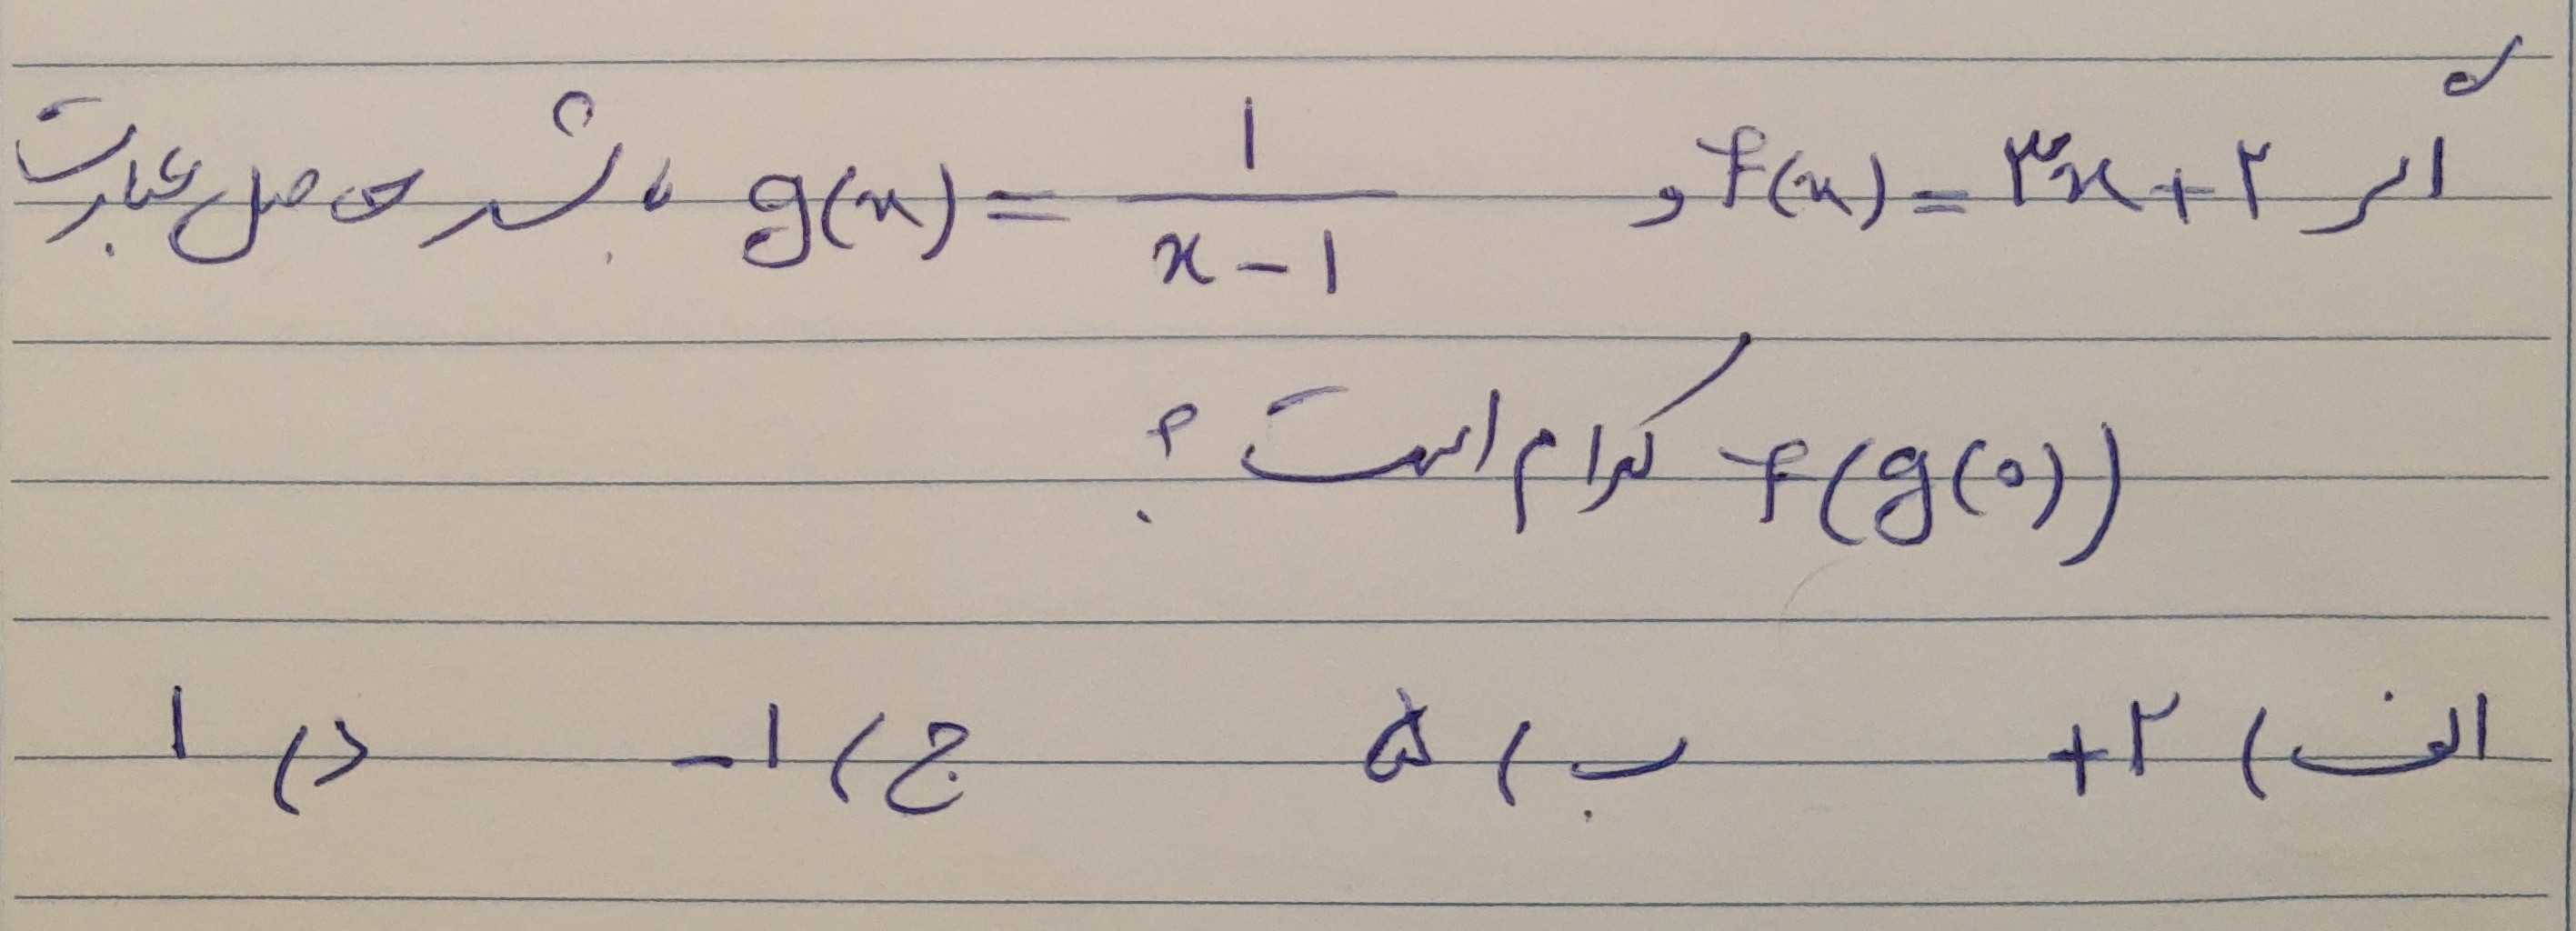 اگر f(x) = ۳x + ۲ و g(x) = ۱/(x - ۱) باشد حاصل عبارت
f(g(۰)) کدام است ؟
الف) ۲+ ب) ۵ ج) ۱- د) ۱